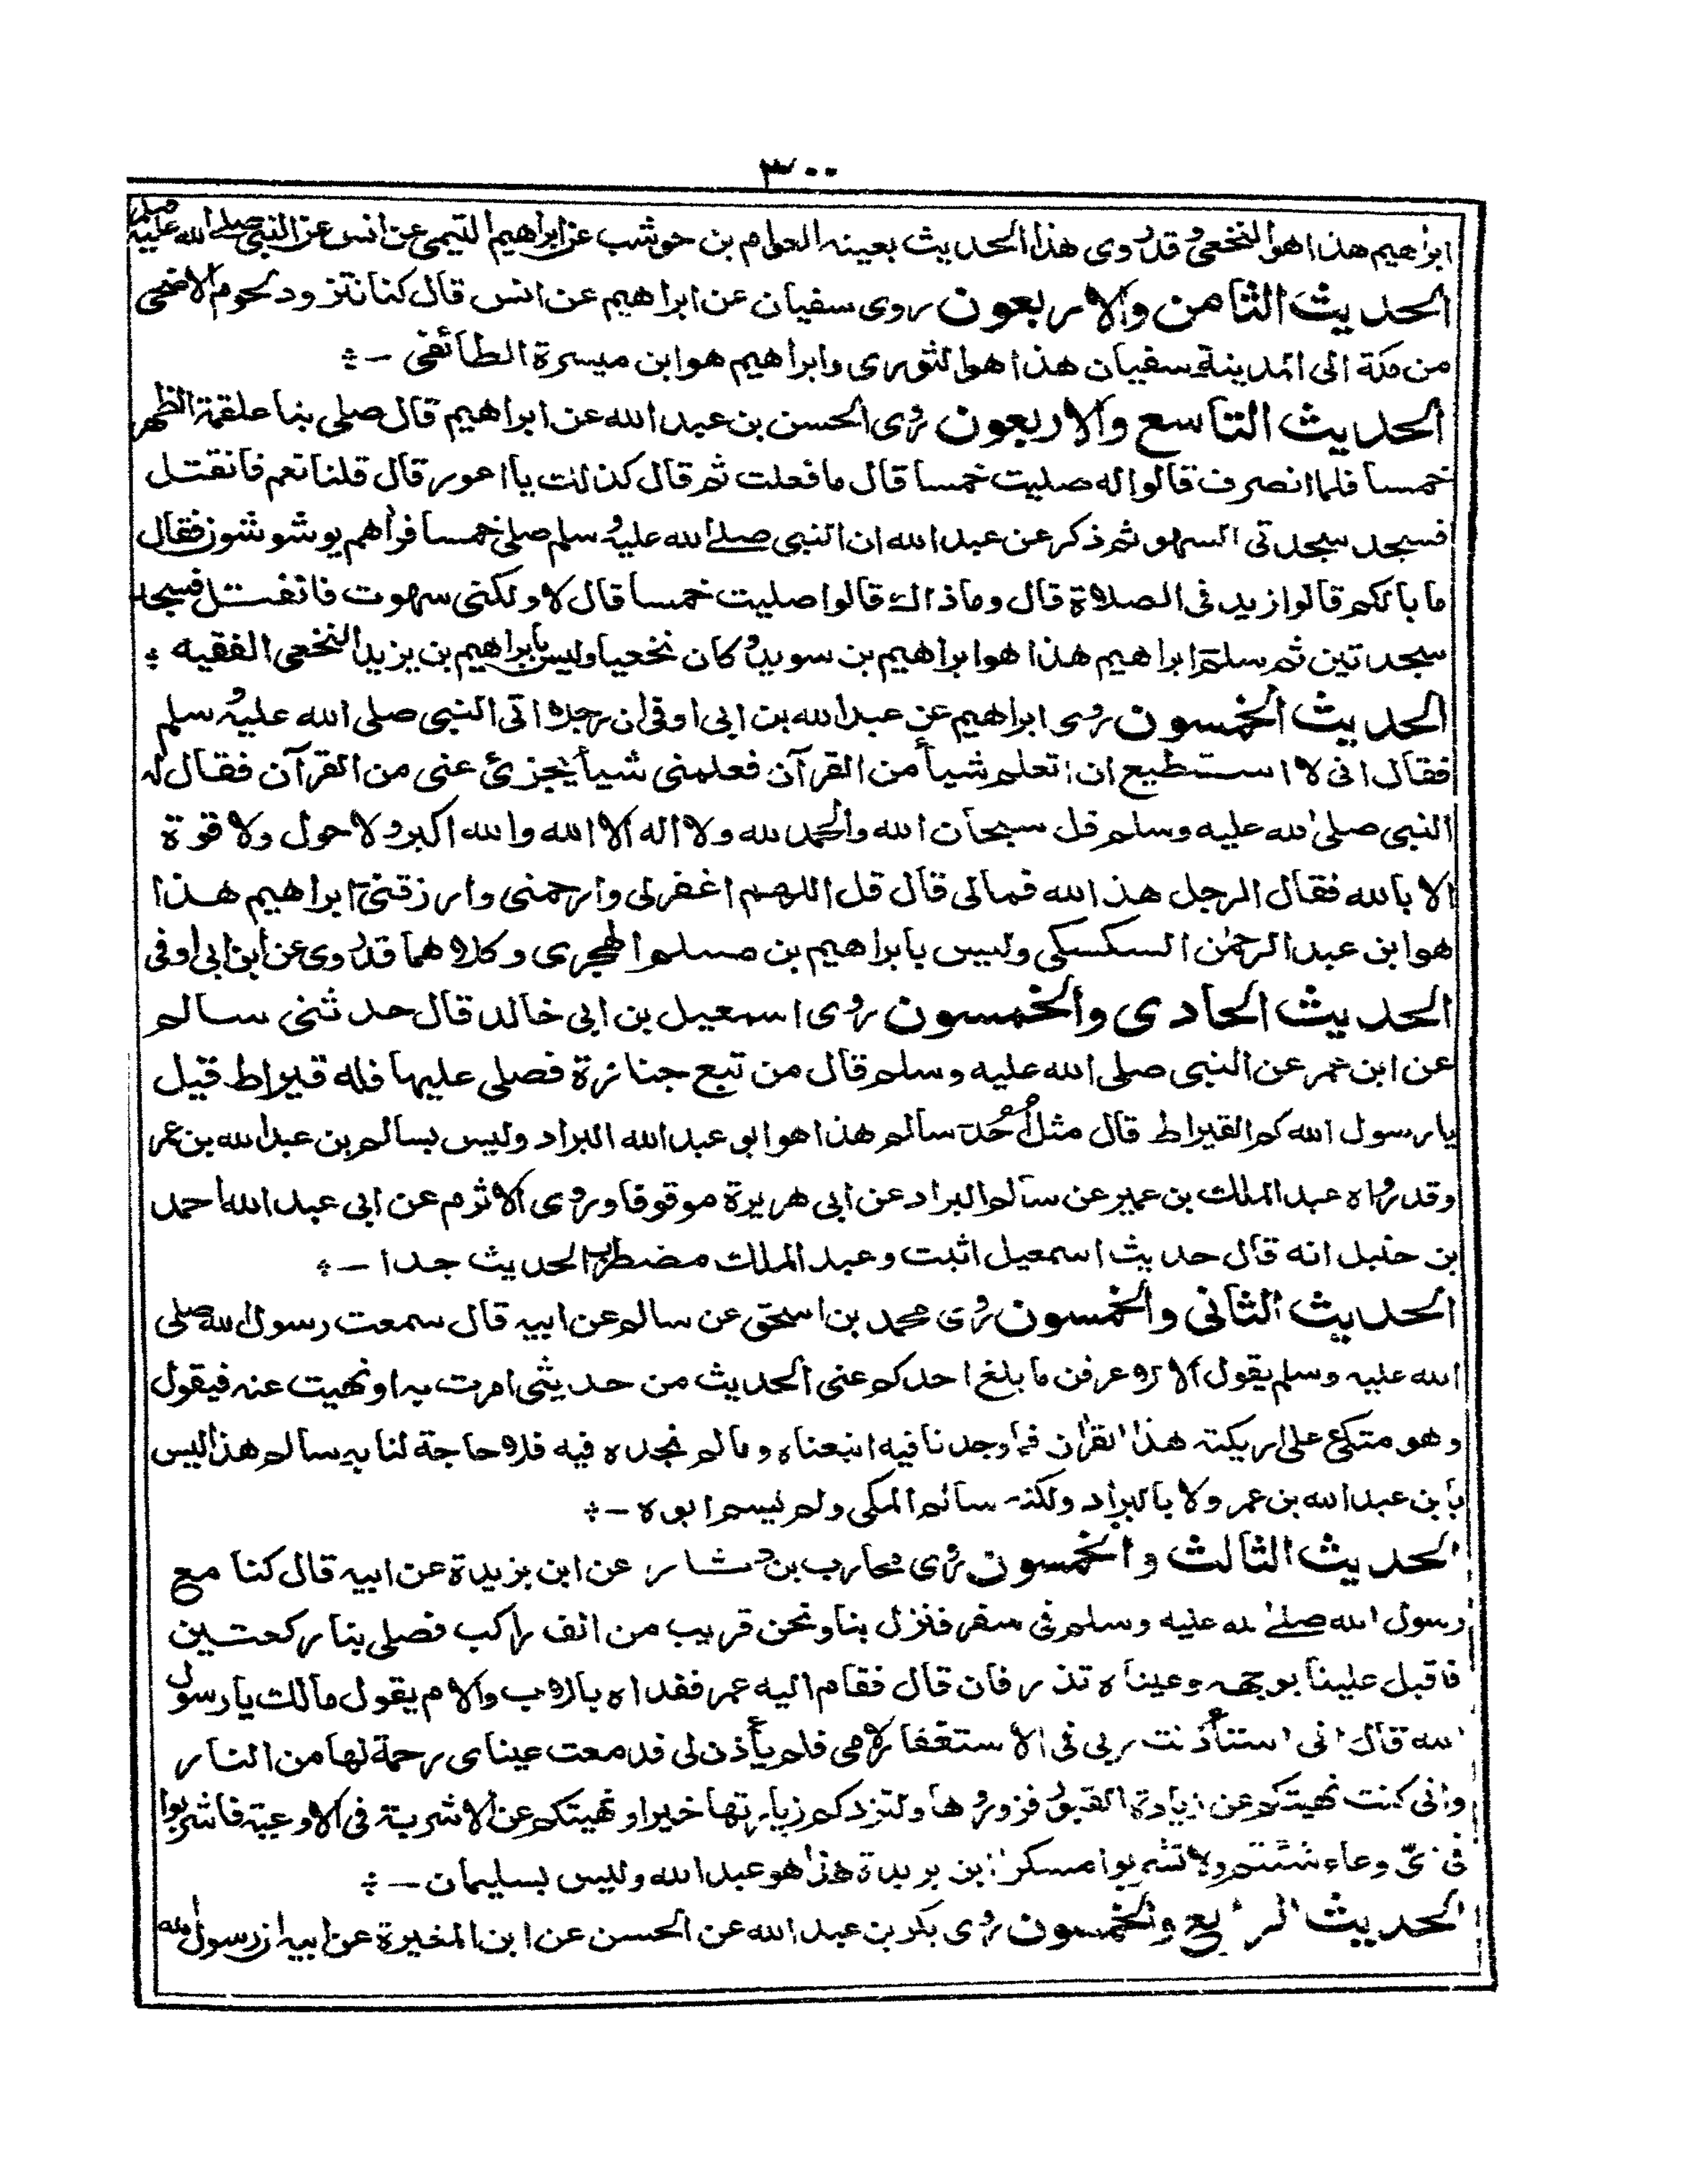 ٣٠٠
ابراهيم هذا هو النخعى وقد روى هذا الحديث بعينه العوام بن حوشب عن ابراهيم التيمى عن انس عن النبى صلى الله عليه وسلم
الحديث الثامن والاربعون روى سفيان عن ابراهيم عن انس قال كنا نتزود لحوم الاضحى
من مكة الى المدينة سفيان هذا هو الثورى وابراهيم هو ابن ميسرة الطائفى -
الحديث التاسع والاربعون روى الحسن بن عبد الله عن ابراهيم قال صلى بنا علقمة الظهر
خمسا فلما انصرف قالوا له صليت خمسا قال ما فعلت ثم قال كذلك يا اعور قال قلنا نعم فانفتل
فسجد سجدتى السهو ثم ذكر عن عبد الله ان النبى صلى الله عليه وسلم صلى خمسا فراهم يوشوشون فقال
ما بالكم قالوا ازيد فى الصلاة قال وما ذاك قالوا صليت خمسا قال لا ولكنى سهوت فانفتل فسجد
سجدتين ثم سلم ابراهيم هذا هو ابراهيم بن سويد وكان نخعيا وليس بابراهيم بن يزيد النخعى الفقيه
الحديث الخمسون روى ابراهيم عن عبد الله بن ابى اوفى ان رجلا اتى النبى صلى الله عليه وسلم
فقال انى لا استطيع ان اتعلم شيأ من القرآن فعلمنى شيأ يجزئ عنى من القرآن فقال له
النبى صلى الله عليه وسلم قل سبحان الله والحمد لله ولا اله الا الله والله اكبر ولا حول ولا قوة
الا بالله فقال الرجل هذا لله فمالى قال قل اللهم اغفر لى وارحمنى وارزقنى ابراهيم هذا
هو ابن عبد الرحمٰن السكسكى وليس بابراهيم بن مسلم الهجرى وكلاهما قد روى عن ابن ابى اوفى
الحديث الحادى والخمسون روى اسمعيل بن ابى خالد قال حدثنى سالم
عن ابن عمر عن النبى صلى الله عليه وسلم قال من تبع جنازة فصلى عليها فله قيراط قيل
يا رسول الله كم القيراط قال مثل أُحُد سالم هذا هو ابو عبد الله البراد وليس بسالم بن عبد الله بن عمر
وقد رواه عبد الملك بن عمير عن سالم البراد عن ابى هريرة موقوفا وروى الاثرم عن ابى عبد الله احمد
بن حنبل انه قال حديث اسمعيل اثبت وعبد الملك مضطرب الحديث جدا -
الحديث الثانى والخمسون روى محمد بن اسحق عن سالم عن ابيه قال سمعت رسول الله صلى
الله عليه وسلم يقول الا لا اعرفن ما بلغ احدكم عنى الحديث من حديثى امرت به او نهيت عنه فيقول
وهو متكئ على اريكته هذا القران فما وجدنا فيه اتبعناه وما لم نجده فيه فلا حاجة لنا به سالم هذا ليس
بابن عبد الله بن عمر ولا بالبراد ولكنه سالم المكى ولم ينسم ابوه -
الحديث الثالث والخمسون روى محارب بن دثار عن ابن بريدة عن ابيه قال كنا مع
رسول الله صلى الله عليه وسلم فى سفر فنزل بنا ونحن قريب من الف راكب فصلى بنا ركعتين
فاقبل علينا بوجهه وعيناه تذرفان قال فقام اليه عمر ففداه بالاب والام يقول مالك يا رسول
الله قال انى استأذنت ربى فى الاستغفار لامى فلم يأذن لى فدمعت عيناى رحمة لها من النار
وانى كنت نهيتكم عن زيارة القبور فزوروها ولتزدكم زيارتها خيرا ونهيتكم عن الاشربة فى الاوعية فاشربوا
فى اىّ وعاء شئتم ولا تشربوا مسكرا ابن بريدة هذا هو عبد الله وليس بسليمان -
الحديث الرابع والخمسون روى بكر بن عبد الله عن الحسن عن ابن المغيرة عن ابيه ان رسول الله